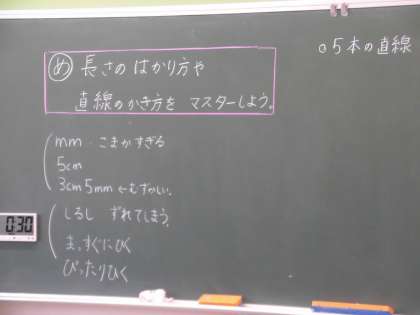 め 長さの はかり方や
直線のかき方を マスターしよう。
○5本の直線
mm こまかすぎる
5cm
3cm5mm ←むずかしい。
しるし ずれてしまう。
まっすぐにひく
ぴったりひく
0:30